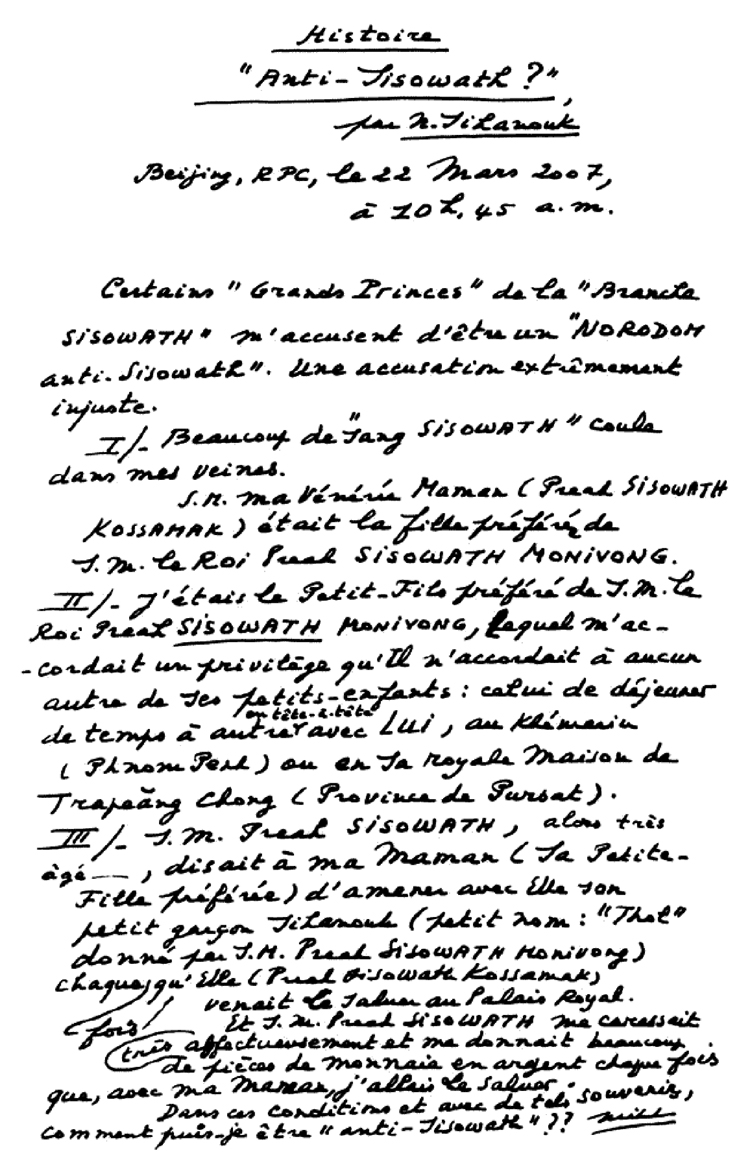 Histoire
"Anti-Sisowath ?",
par N. Sihanouk
Beijing, RPC, le 22 Mars 2007,
à 10h,45 a.m.
Certains "Grands Princes" de la "Branche
SISOWATH" m'accusent d'être un "NORODOM
anti-Sisowath". Une accusation extrêmement
injuste.
I/- Beaucoup de "sang SISOWATH" coule
dans mes veines.
S.M. ma Vénérée Maman (Preah SISOWATH
KOSSAMAK) était la fille préférée de
S.M. le Roi Preah SISOWATH MONIVONG.
II/- J'étais le Petit-Fils préféré de S.M. le
Roi Preah SISOWATH MONIVONG, lequel m'ac-
-cordait un privilège qu'Il n'accordait à aucun
autre de Ses petits-enfants : celui de déjeuner
en tête-à-tête
de temps à autre avec LUI, au Khémarin
(Phnom Penh) ou en Sa royale Maison de
Trapeãng Chong (Province de Pursat).
III/- S.M. Preah SISOWATH, alors très
âgé —, disait à ma Maman (Sa Petite-
Fille préférée) d'amener avec Elle son
petit garçon Sihanouk (petit nom : "Thol"
donné par S.M. Preah SISOWATH Monivong)
chaque qu'Elle (Preah Sisowath Kossamak)
fois
venait Le saluer au Palais Royal.
Et S.M. Preah SISOWATH me caressait
très affectueusement et me donnait beaucoup
de pièces de monnaie en argent chaque fois
que, avec ma Maman, j'allais Le saluer.
Dans ces conditions et avec de tels souvenirs,
comment puis-je être "anti-Sisowath" ??